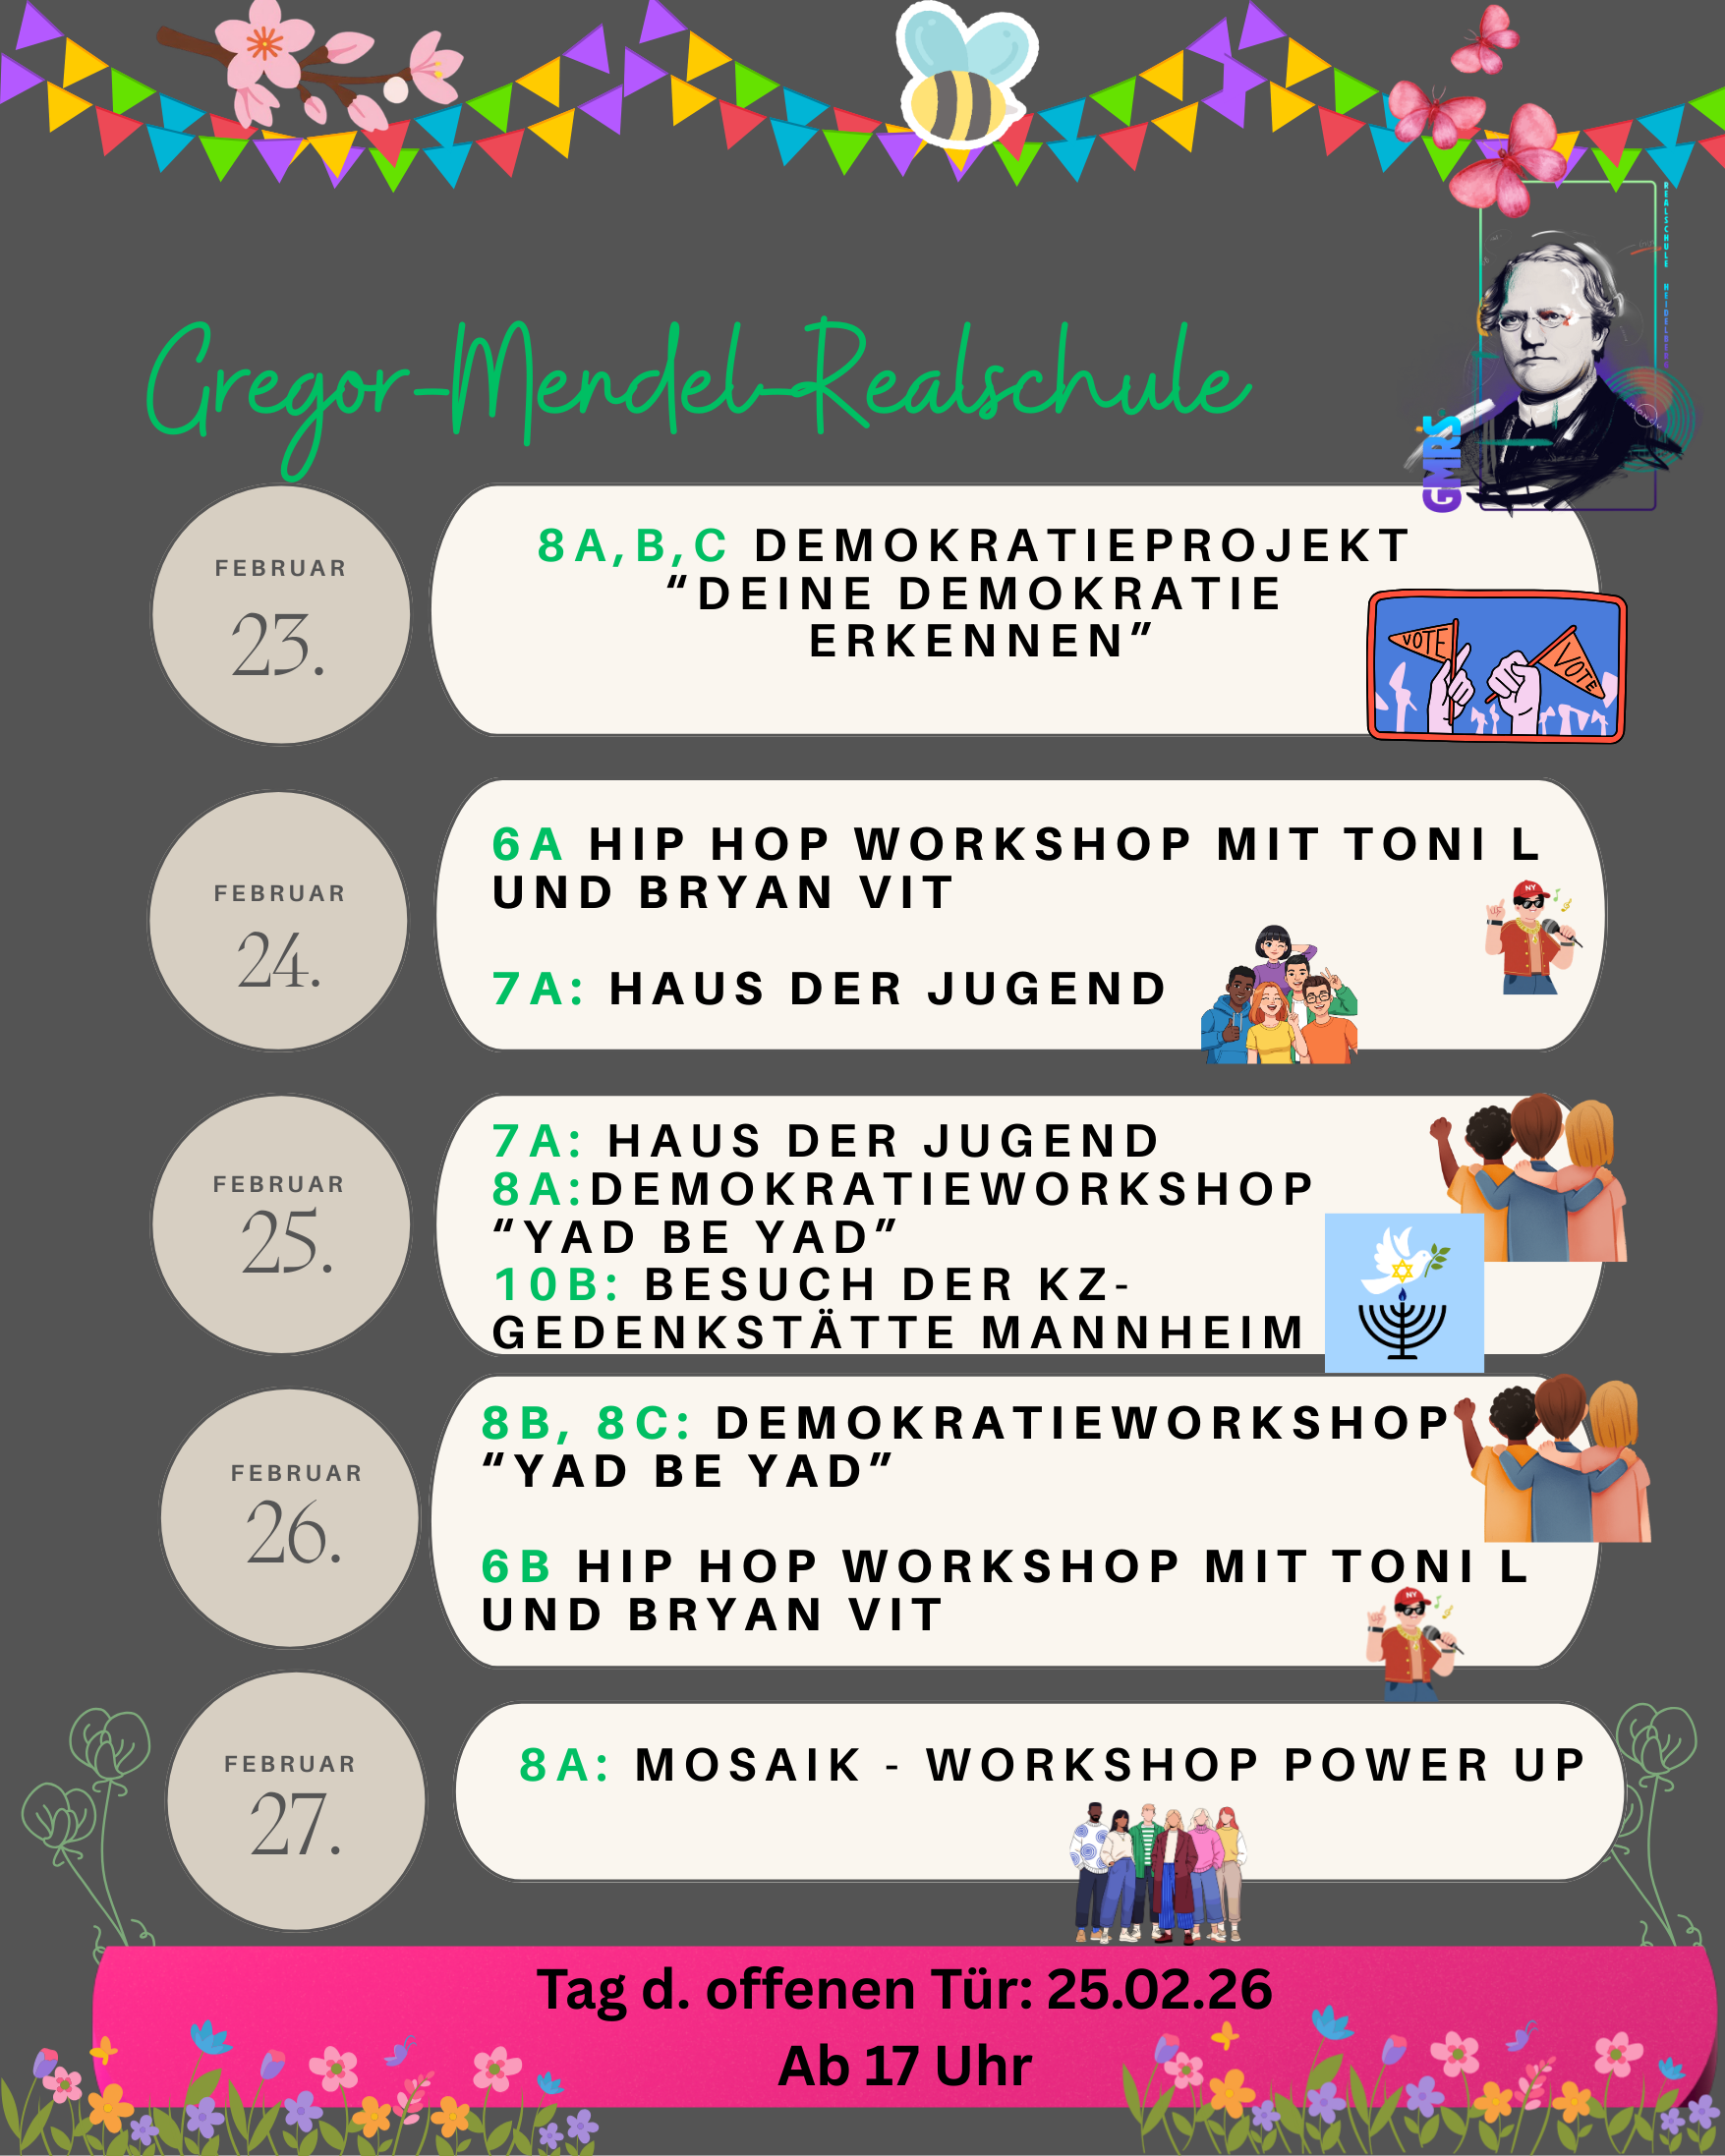 REALSCHULE HEIDELBERG
Gregor-Mendel-Realschule
GMRS
FEBRUAR
23.
8A,B,C DEMOKRATIEPROJEKT
“DEINE DEMOKRATIE
ERKENNEN”
VOTE
VOTE
FEBRUAR
24.
6A HIP HOP WORKSHOP MIT TONI L
UND BRYAN VIT
7A: HAUS DER JUGEND
NY
FEBRUAR
25.
7A: HAUS DER JUGEND
8A:DEMOKRATIEWORKSHOP
“YAD BE YAD”
10B: BESUCH DER KZ-
GEDENKSTÄTTE MANNHEIM
FEBRUAR
26.
8B, 8C: DEMOKRATIEWORKSHOP
“YAD BE YAD”
6B HIP HOP WORKSHOP MIT TONI L
UND BRYAN VIT
NY
FEBRUAR
27.
8A: MOSAIK - WORKSHOP POWER UP
Tag d. offenen Tür: 25.02.26
Ab 17 Uhr